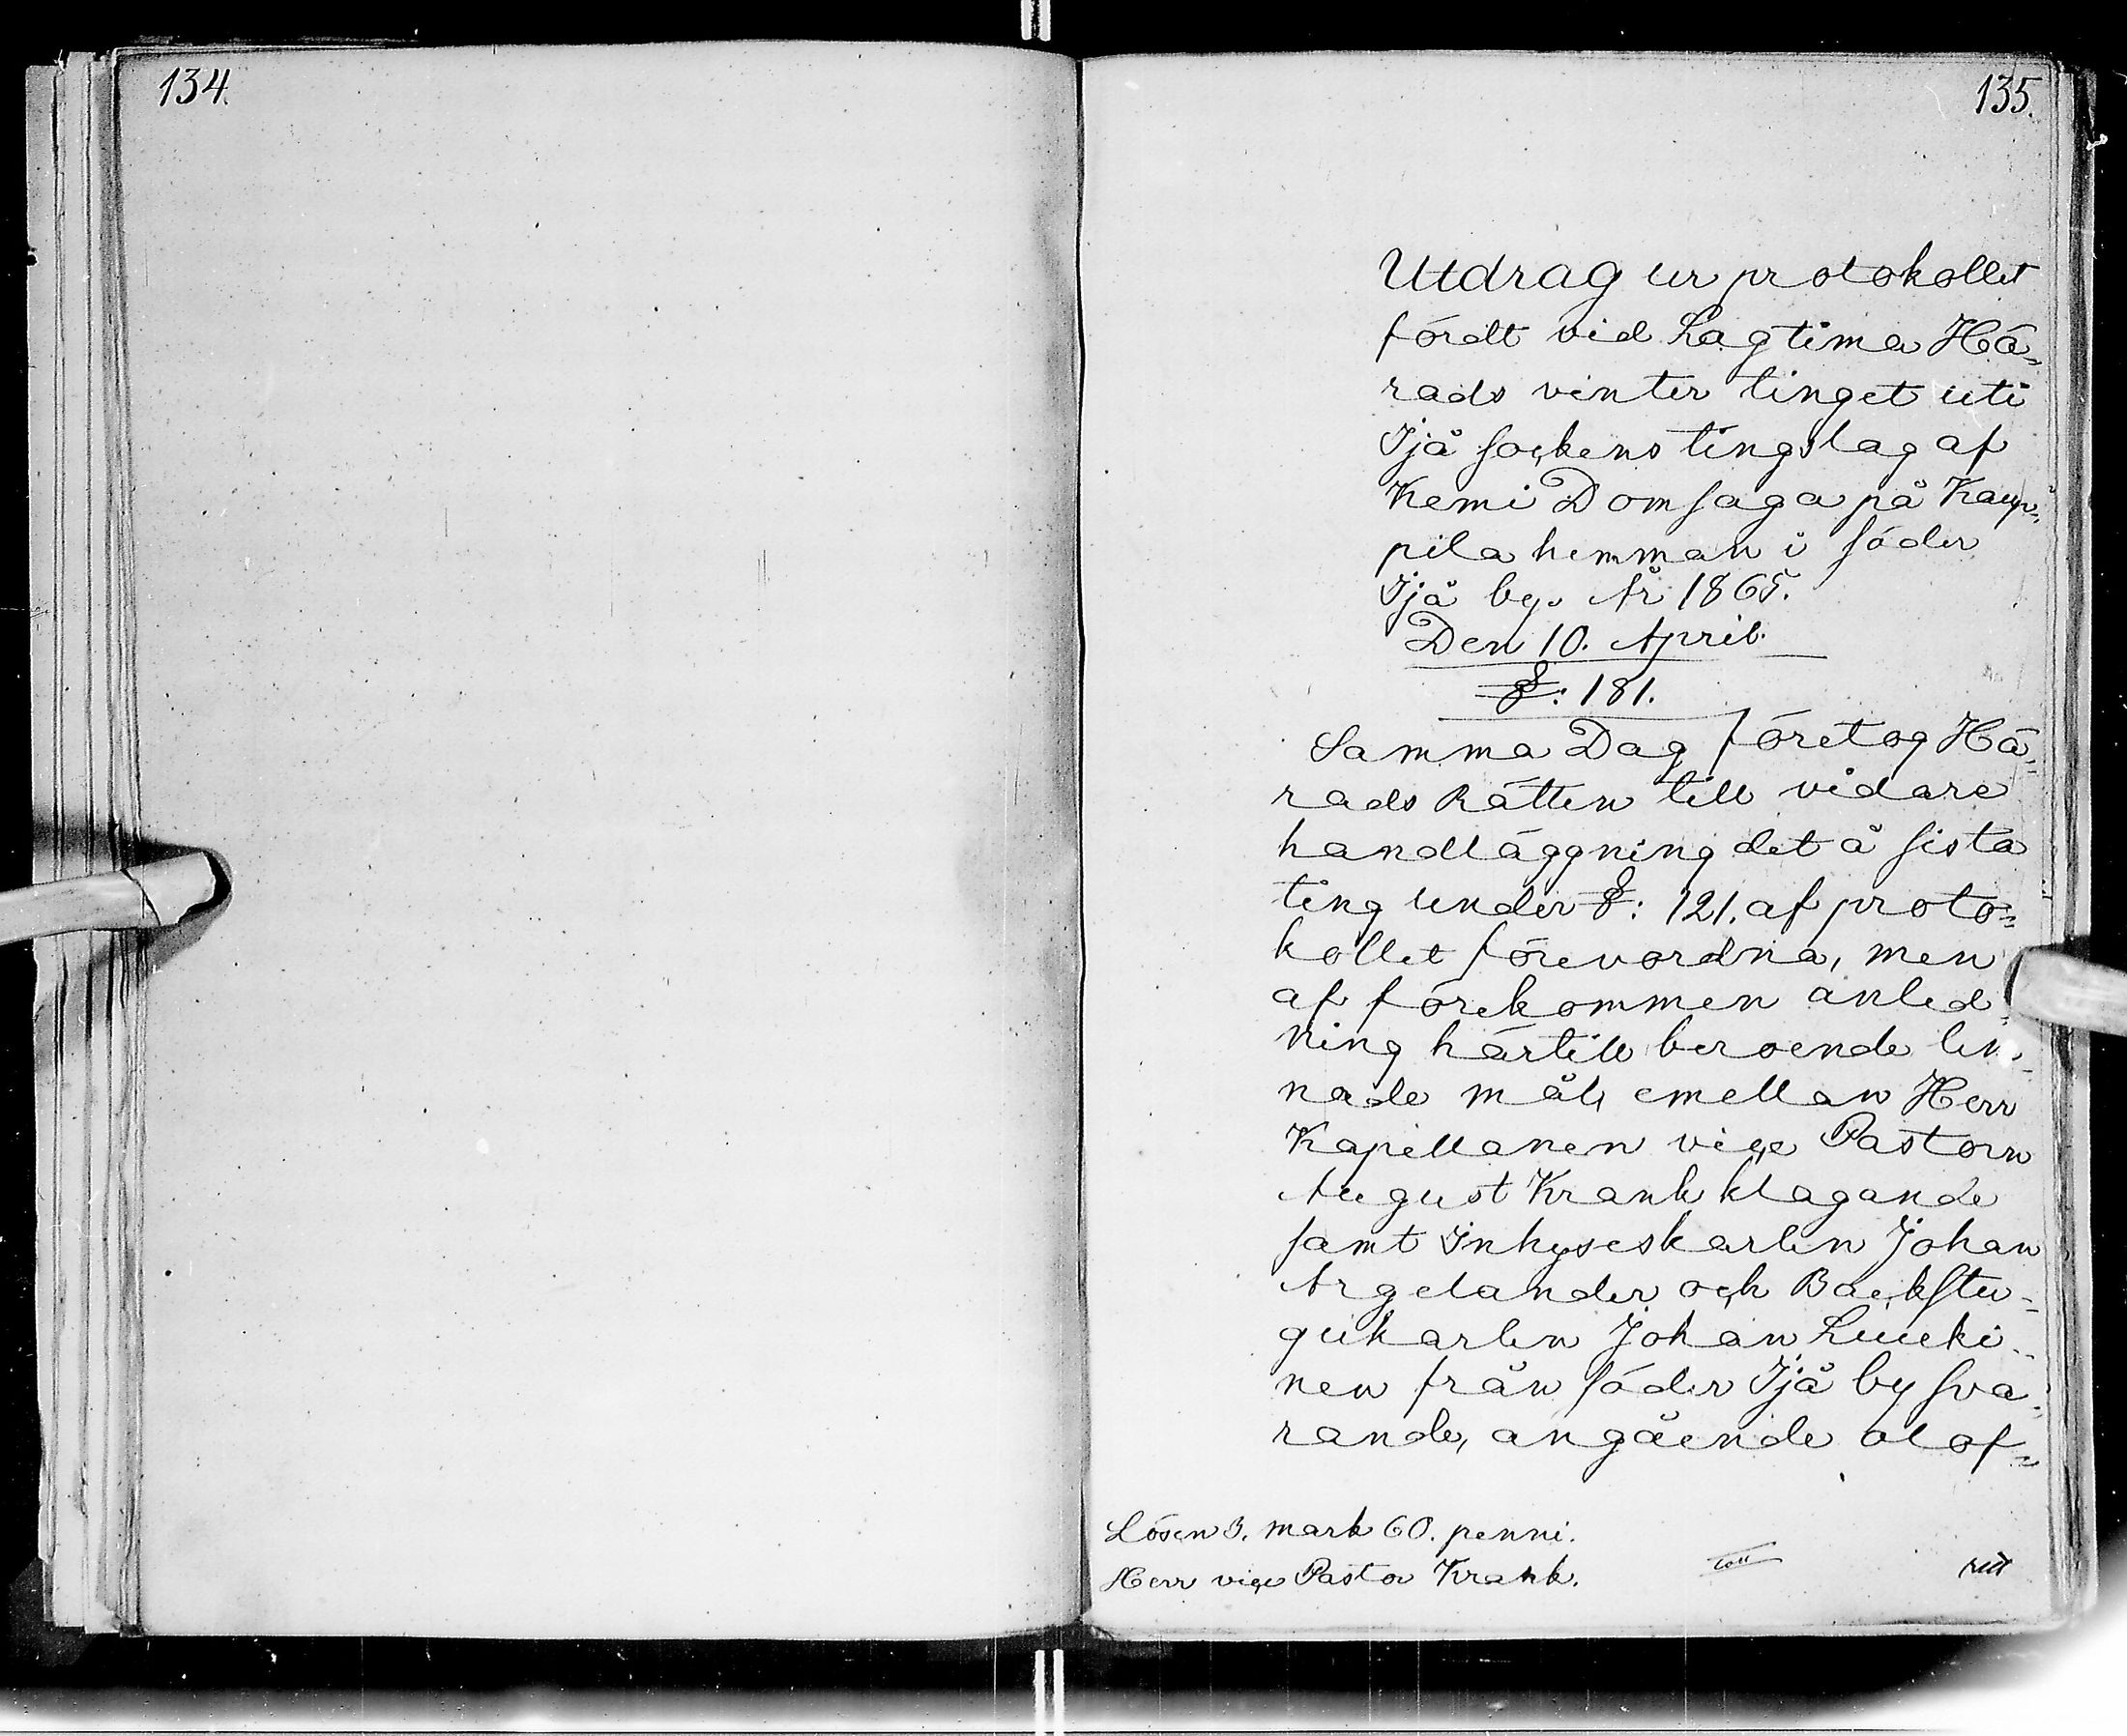 134.
135.
Utdrag ur protokollet
fördt vid Lagtima Hä=
rads vinter tinget uti
Ijå sockens tingslag af
Kemi Domsaga på Kaup=
pila hemman i söder
Ijå by. År 1865.
Den 10. April.
§: 181.
Samma Dag företog Hä=
rads Rätten till vidare
handläggning det å sista
ting under §: 121. af proto=
kollet förevordna, men
af förekommen anled=
ning härtill beroende lem=
nade mål, emellan Herr
Kapellanen vice Pastorn
August Krank klagande
samt Inhyseskarlen Johan
Argelander och Backstu=
gukarlen Johan Luuki=
nen från söder Ijå by sva=
rande, angående olof=
Lösen 3. mark 60. penni.
Herr vice Pastor Krank.